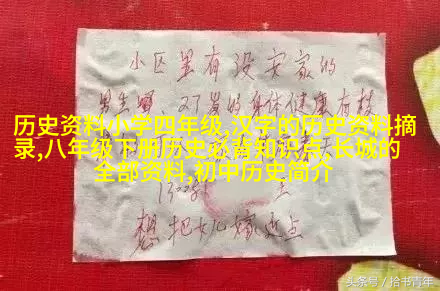 小区里有没安家的
男生嘛 27岁的身体健康有教
历史资料小学四年级,汉字的历史资料摘
录,八年级下册历史必背知识点,长城的
全部资料,初中历史简介
想把女儿嫁近点
头条号／拾书青年